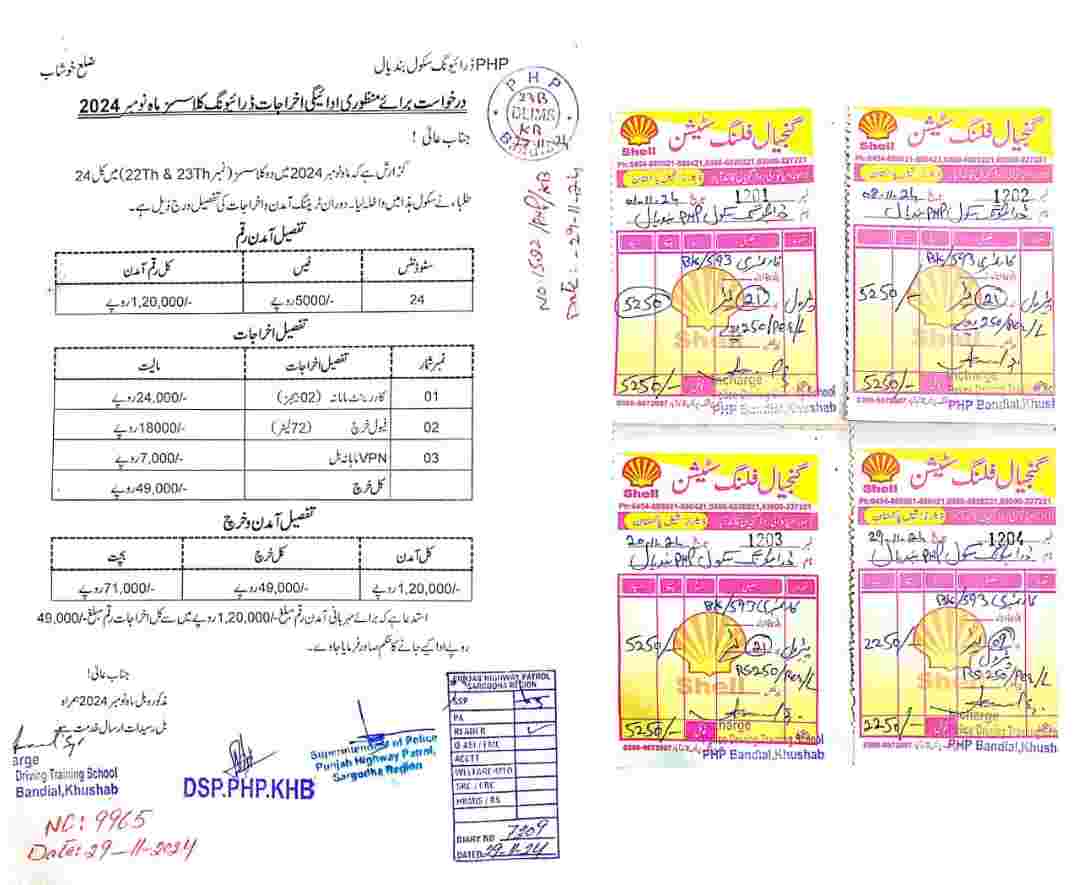 PHP ڈرائیونگ سکول بندیال ضلع خوشاب
درخواست برائے منظوری ادائیگی اخراجات ڈرائیونگ کلاسسز ماہ نومبر 2024
جناب عالی !
گزارش ہے کہ ماہ نومبر 2024 میں دو کلاسسز (نمبر 22Th & 23Th) میں کل 24
طلباء نے سکول ہذا میں داخلہ لیا۔ دوران ٹریننگ آمدن و اخراجات کی تفصیل درج ذیل ہے۔
تفصیل آمدن رقم
سٹوڈنٹس فیس کل رقم آمدن
24 5000/- روپے 1,20,000/- روپے
تفصیل اخراجات
نمبر شمار تفصیل اخراجات مالیت
01 کار رینٹ ماہانہ (02 بیجز) 24,000/- روپے
02 فیول خرچ (72 لیٹر) 18000/- روپے
03 VPN ماہانہ بل 7,000/- روپے
کل خرچ 49,000/- روپے
تفصیل آمدن و خرچ
کل آمدن کل خرچ بچت
1,20,000/- روپے 49,000/- روپے 71,000/- روپے
استدعا ہے کہ برائے مہربانی آمدن رقم مبلغ -/1,20,000 روپے میں سے کل اخراجات رقم مبلغ -/49,000
روپے ادا کیے جانے کا حکم صادر فرمایا جاوے۔
جناب عالی!
مذکورہ بل ماہ نومبر 2024 ہمراہ
بل رسیدات ارسال خدمت ہے
arge
Driving Training School
Bandial,Khushab
NO: 9965
Date: 29-11-2024
DSP.PHP.KHB
Superintendent of Police
Punjab Highway Patrol,
Sargodha Region
PUNJAB HIGHWAY PATROL
SARGODHA REGION
SSP
PA
READER
O-ASI / EMC
ACCTT
WELFARE-WTD
SRC / CRC
HRMIS / RS
DIARY NO 7209
DATED 29-11-24
PHP
DLIMS
27-11-24
NO: 1592 /PHP/KB
Date: -29-11-24
گنجیال فلنگ سٹیشن
Shell
ڈیلرز شیل پاکستان
1201 01-11-24
ڈرائیونگ سکول PHP بندیال
BK/593
پیٹرول 21 لیٹر 5250
250/Per/L
5250/-
Incharge
PHP Bandial,Khushab
گنجیال فلنگ سٹیشن
Shell
ڈیلرز شیل پاکستان
1202 08-11-24
ڈرائیونگ سکول PHP بندیال
BK/593
پیٹرول 21 لیٹر 5250/-
250/Per/L
5250/-
Incharge
PHP Bandial,Khush
گنجیال فلنگ سٹیشن
Shell
ڈیلرز شیل پاکستان
1203 20-11-24
ڈرائیونگ سکول PHP بندیال
BK/593
پیٹرول 21 لیٹر 5250/-
RS250/Per/L
5250/-
charge
Driving Training School
PHP Bandial,Khushab
گنجیال فلنگ سٹیشن
Shell
ڈیلرز شیل پاکستان
1204 29-11-24
ڈرائیونگ سکول PHP بندیال
BK/593
پیٹرول 09 لیٹر 2250/-
RS250/Per/L
2250/-
charge
Driving Training School
PHP Bandial,Khushab